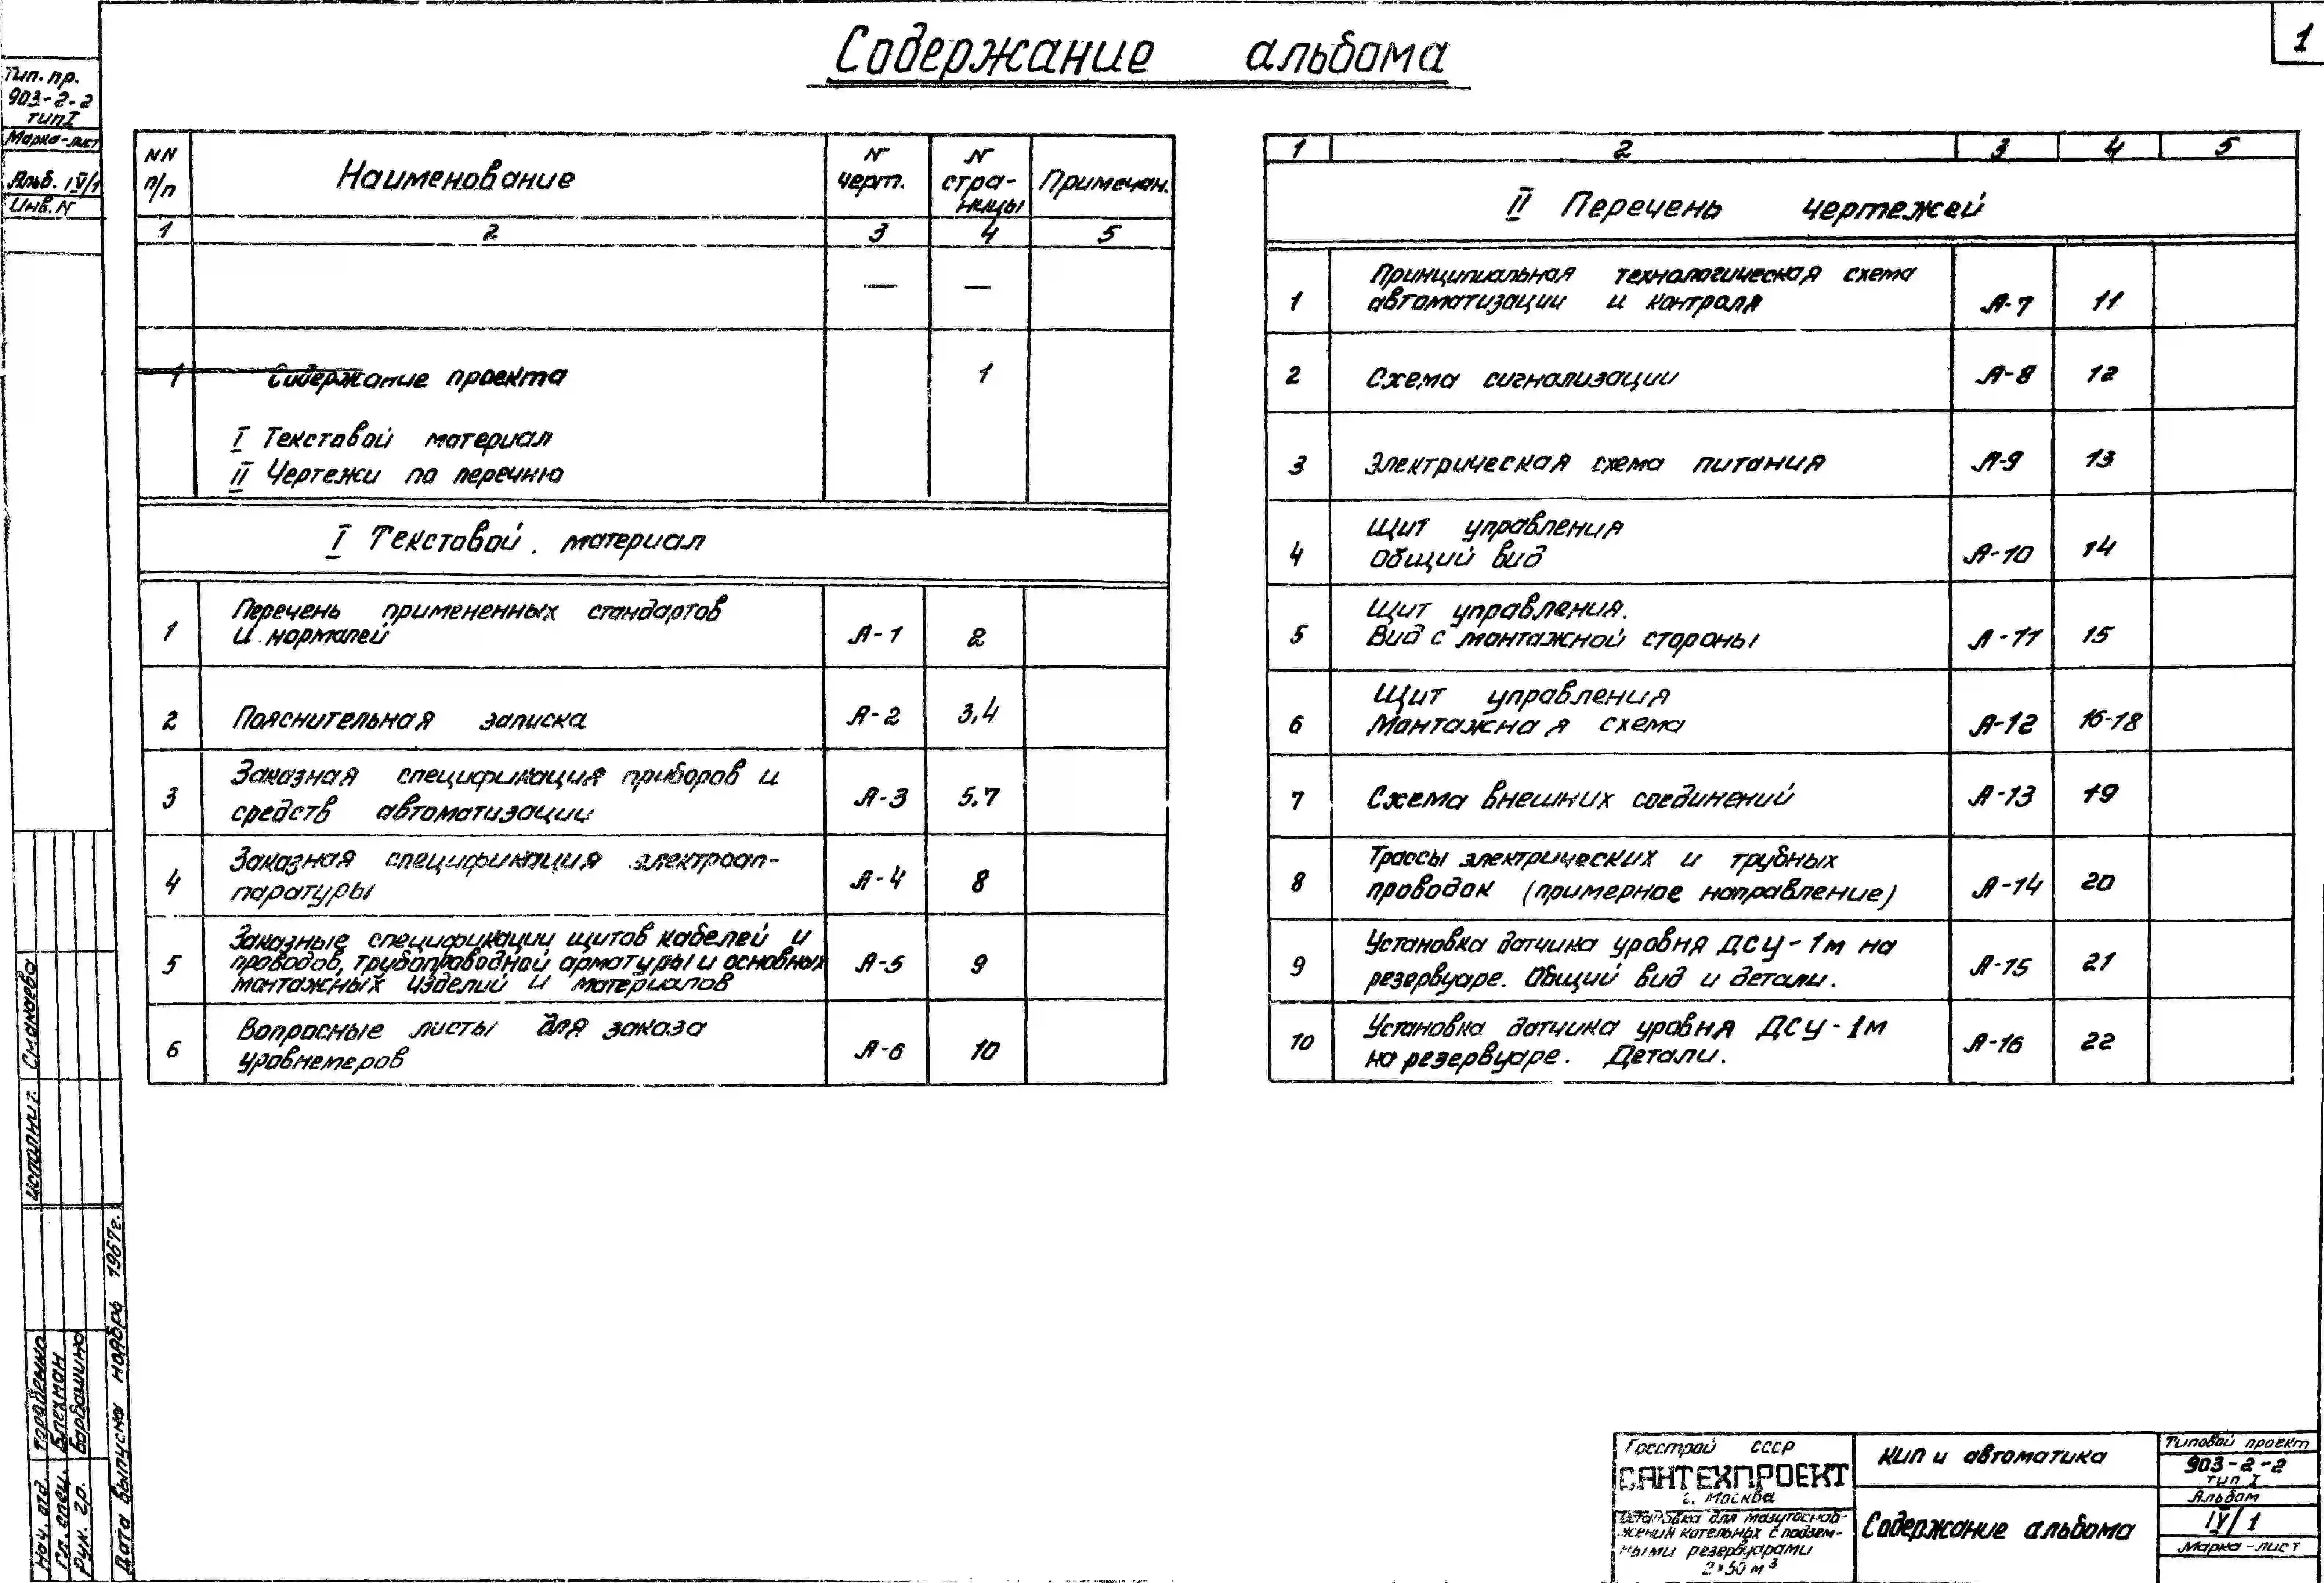 1
Содержание альбома
Тип. пр.
903-2-2
тип I
Марка-лист
Альб. IV/1
Инв. N
NN п/п Наименование N черт. N страницы Примечан.
1 2 3 4 5
— —
1 Содержание проекта 1
I Текстовой материал
II Чертежи по перечню
I Текстовой материал
Перечень примененных стандартов
1 и нормалей А-1 2
2 Пояснительная записка А-2 3,4
Заказная спецификация приборов и
3 средств автоматизации А-3 5,7
Заказная спецификация электроап-
4 паратуры А-4 8
Заказные спецификации щитов кабелей и
5 проводов, трубопроводной арматуры и основных А-5 9
монтажных изделий и материалов
Вопросные листы для заказа
6 уровнемеров А-6 10
1 2 3 4 5
II Перечень чертежей
Принципиальная технологическая схема
1 автоматизации и контроля А-7 11
2 Схема сигнализации А-8 12
3 Электрическая схема питания А-9 13
Щит управления
4 Общий вид А-10 14
Щит управления.
5 Вид с монтажной стороны А-11 15
Щит управления
6 Монтажная схема А-12 16-18
7 Схема внешних соединений А-13 19
Трассы электрических и трубных
8 проводок (примерное направление) А-14 20
Установка датчика уровня ДСУ-1м на
9 резервуаре. Общий вид и детали. А-15 21
Установка датчика уровня ДСУ-1м
10 на резервуаре. Детали. А-16 22
Исполнит. Смакаева
Нач. отд. Тарабенко
Гл. спец. Блехман
Рук. гр. Барбашина
Дата выпуска ноябрь 1967г.
Госстрой СССР
САНТЕХПРОЕКТ
г. Москва
Установка для мазутоснаб-
жения котельных с подзем-
ными резервуарами
2×50 м³
КИП и автоматика
Содержание альбома
Типовой проект
903-2-2
тип I
Альбом
IV/1
Марка-лист